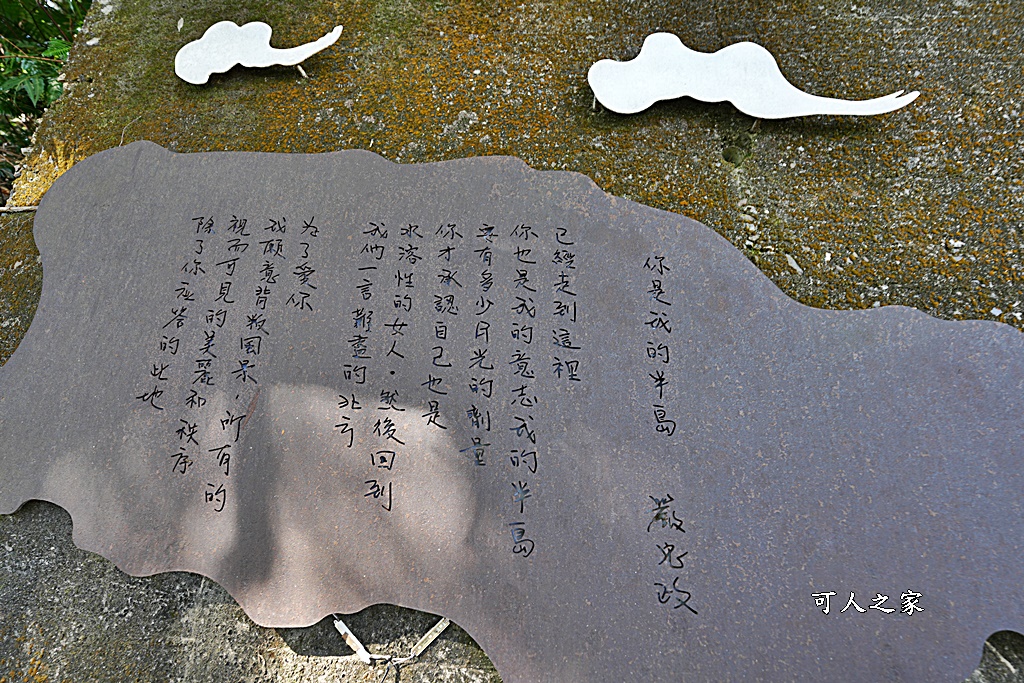 你是我的半島 嚴忠政
已經走到這裡
你也是我的意志我的半島
要有多少月光的劑量
你才承認自己也是
水溶性的女人。然後回到
我們一言難盡的
为了愛你
我願意背叛風景,所有的
視而可見的美麗和秩序
除了你应答的此地
可人之家